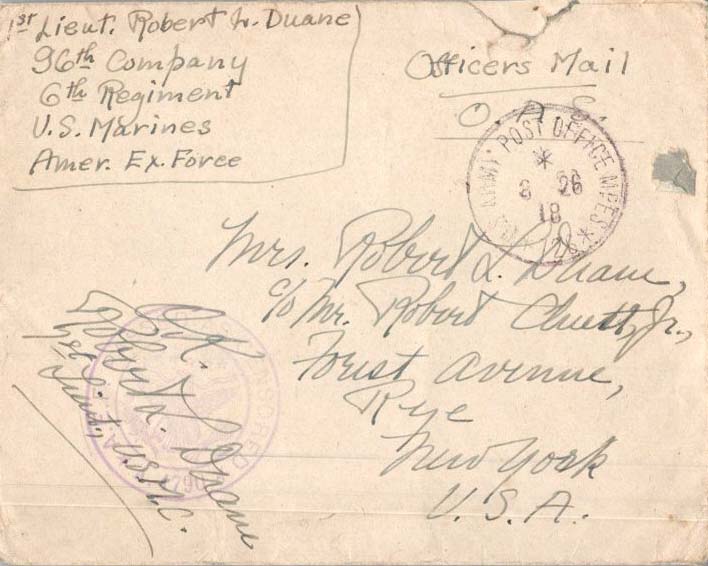 1st Lieut. Robert L. Duane
96th Company
6th Regiment
U.S. Marines
Amer. Ex. Force
Officers Mail
O. A. S.
ARMY POST OFFICE MPES
18
Mrs. Robert L. Duane,
c/o Mr. Robert Cluett, Jr.,
Forest Avenue,
Rye
New York
U. S. A.
O.K.
Robert L. Duane
1st Lieut., U.S.M.C.
CENSORED
A.E.F.